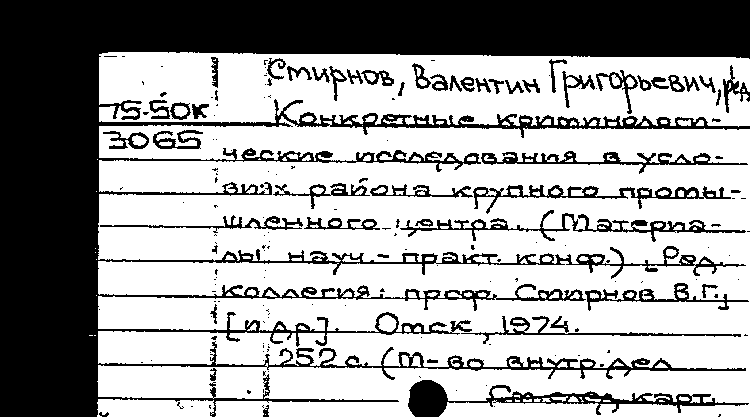 Смирнов, Валентин Григорьевич, ред.
75-50к
Конкретные криминологи-
3065
ческие исследования в усло-
виях района крупного промы-
шленного центра. (Материа-
лы науч.- практ. конф.) [Ред.
коллегия: проф. Смирнов В.Г.,
[и др.]. Омск, 1974.
252 с. (М-во внутр. дел
См. след. карт.